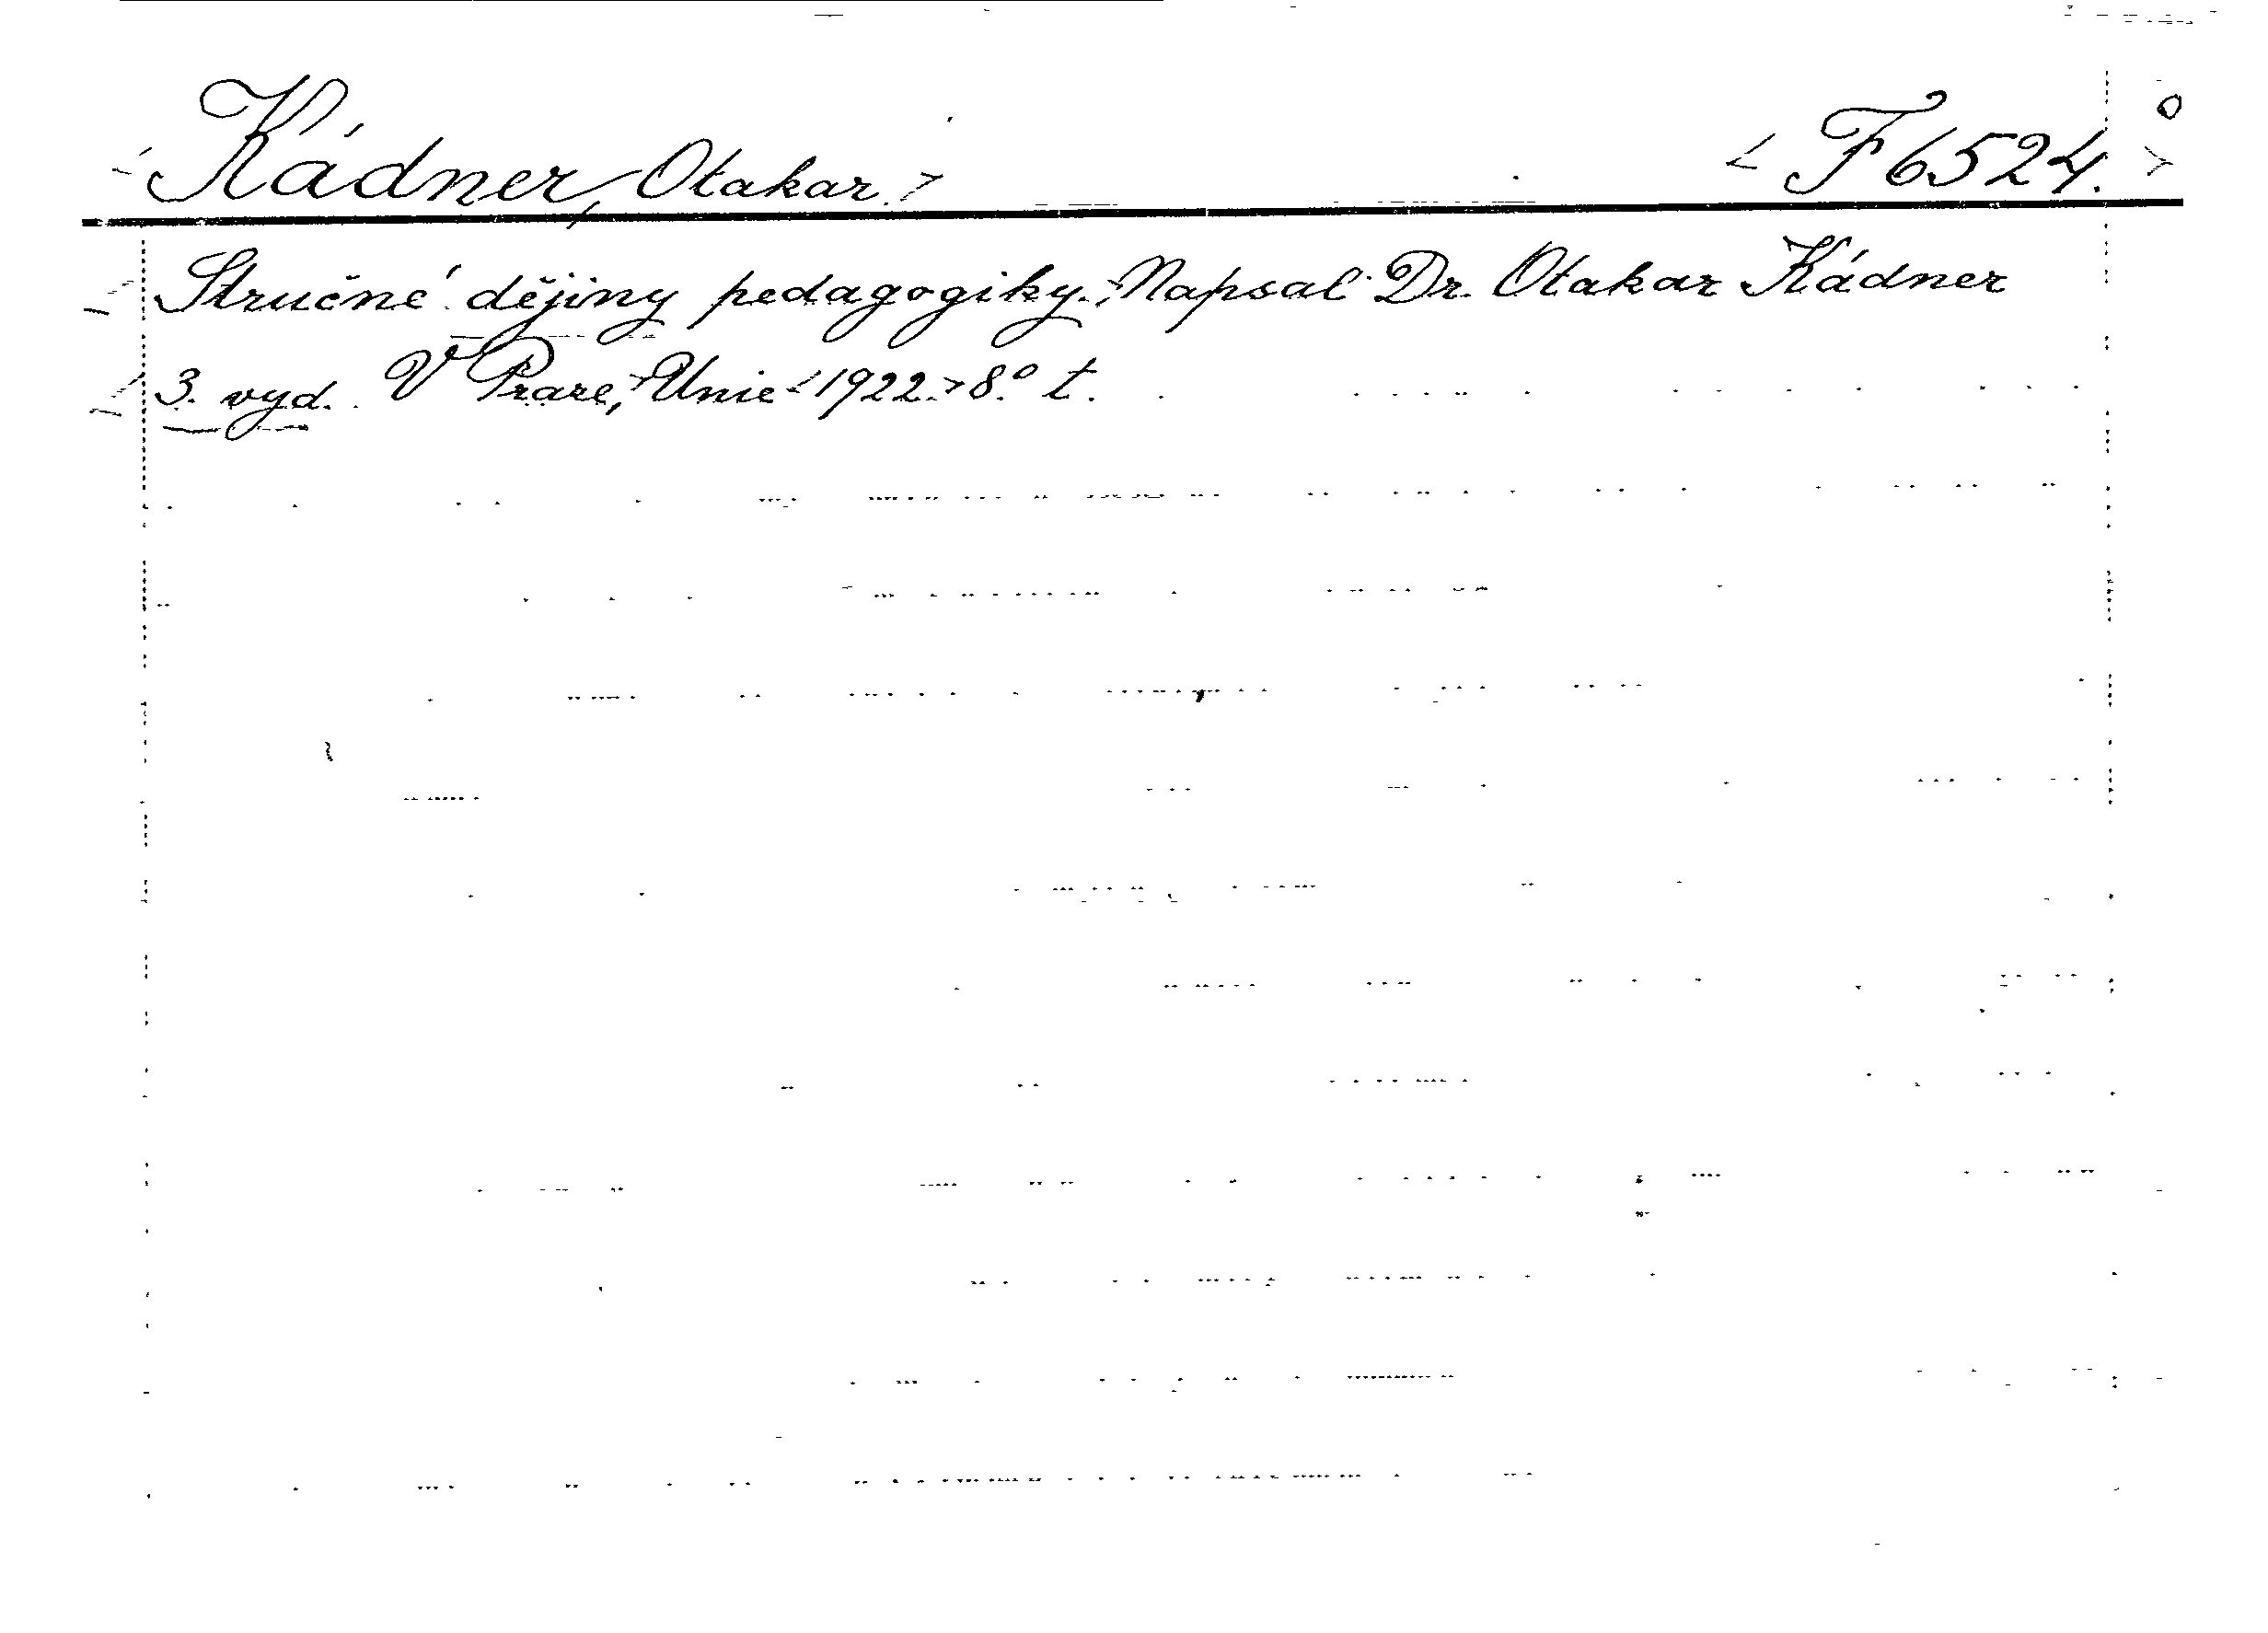 Kádner, Otakar. F 6524.
Stručné dějiny pedagogiky. Napsal Dr. Otakar Kádner
3. vyd. V Praze, Unie 1922. 8.° t.